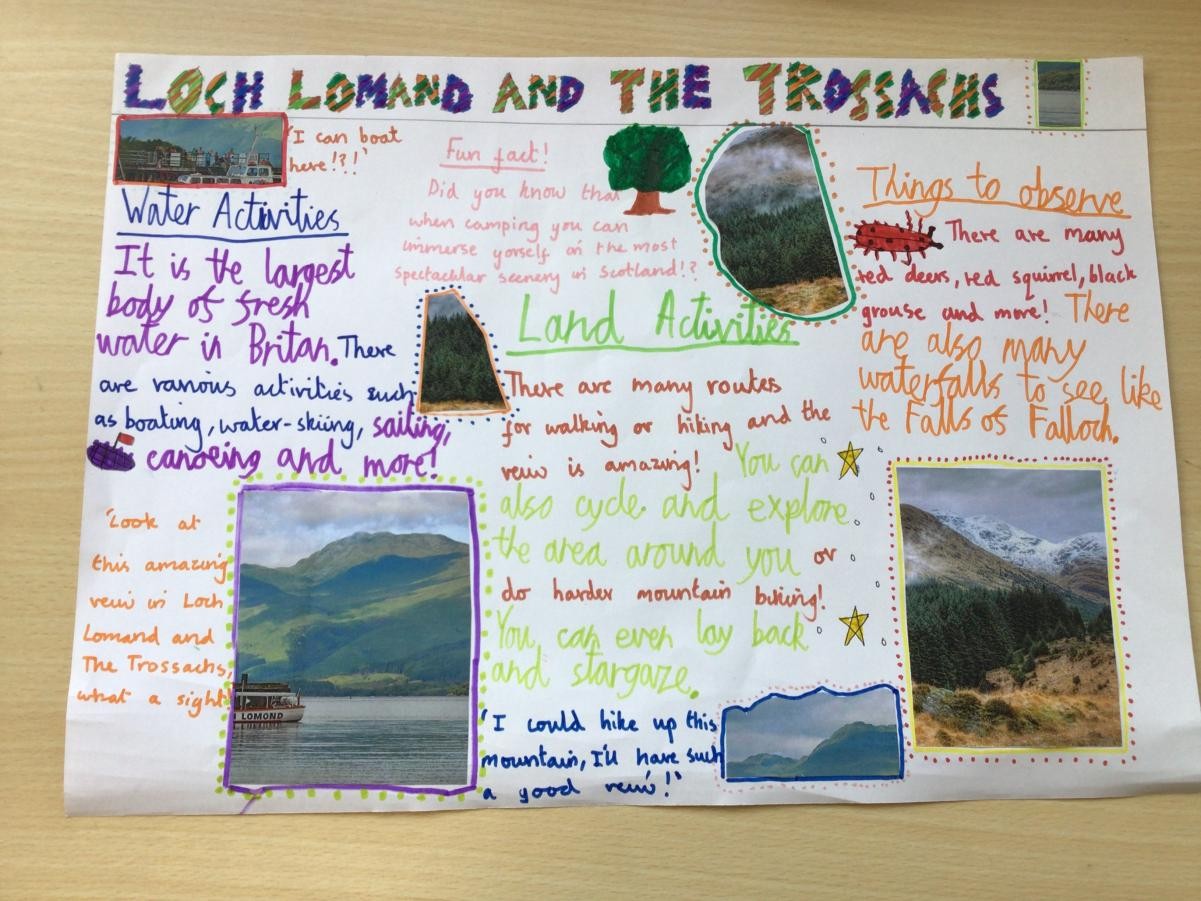 LOCH LOMAND AND THE TROSSACHS
'I can boat
here!?!'
Water Activities
It is the largest
body of fresh
water in Britan. There
are various activities such
as boating, water-skiing, sailing,
canoeing and more!
'Look at
this amazing
veiw in Loch
Lomand and
The Trossachs,
what a sight'
LOMOND
Fun fact!
Did you know that
when camping you can
immerse yorself in the most
spectacular scenery in Scotland!?
Land Activities
There are many routes
for walking or hiking and the
veiw is amazing! You can
also cycle and explore
the area around you or
do harder mountain biking!
You can even lay back
and stargaze.
'I could hike up this
mountain, I'll have such
a good veiw!'
Things to observe
There are many
red deers, red squirrel, black
grouse and more! There
are also many
waterfalls to see like
the Falls of Falloch.